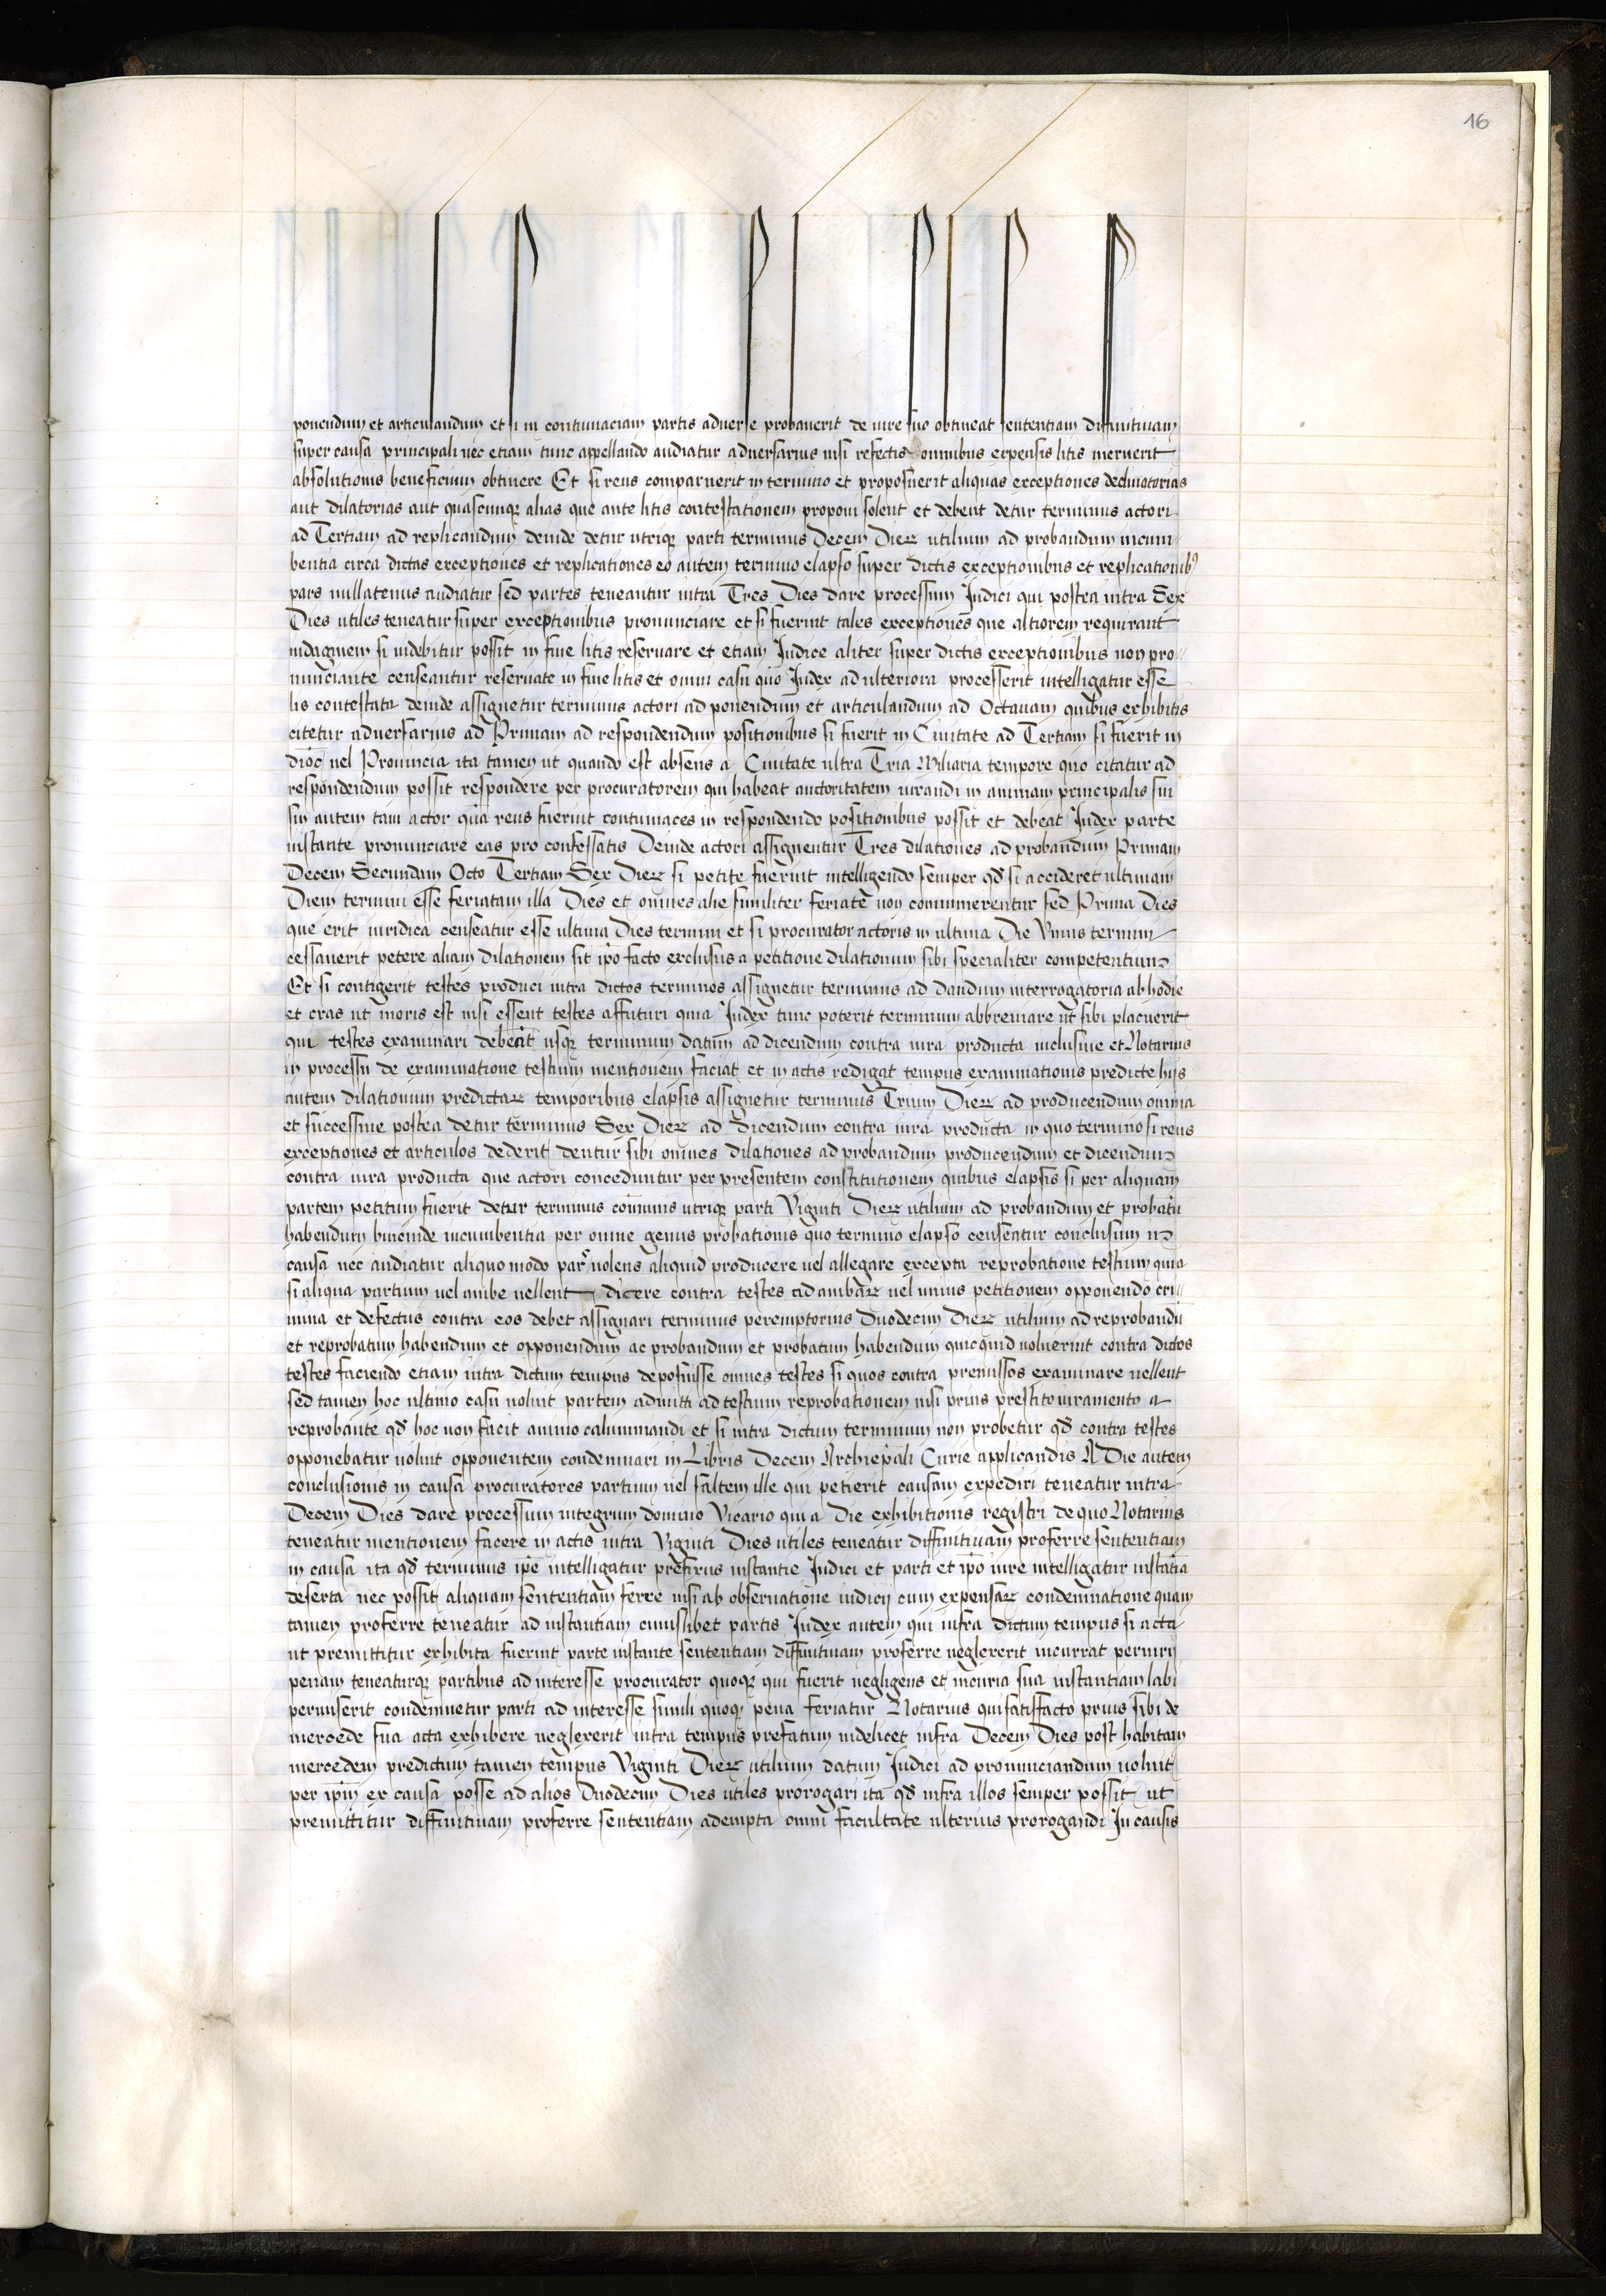 16
ponendum et articulandum et si in contumaciam partis aduerse probauerit de iure suo obtineat sententiam diffinitiuam
super causa principali nec etiam tunc appellando audiatur aduersarius nisi refectis omnibus expensis litis meruerit
absolutionis beneficium obtinere Et si reus comparuerit in termino et proposuerit aliquas exceptiones declinatorias
aut dilatorias aut quascunqꝫ alias que ante litis contestationem proponi solent et debent detur terminus actori
ad Tertiam ad replicandum deinde detur utriqꝫ parti terminus Decem Dieꝝ utilium ad probandum incum-
bentia circa dictas exceptiones et replicationes eo autem termino elapso super dictis exceptionibus et replicationibꝰ
pars nullatenus audiatur sed partes teneantur intra Tres Dies dare processum Judici qui postea intra Sex
Dies utiles teneatur super exceptionibus pronunciare et si fuerint tales exceptiones que altiorem requirant
indaginem si uidebitur possit in fine litis reseruare et etiam Judice aliter super dictis exceptionibus non pro-
nunciante censeantur reseruate in fine litis et omni casu quo Judex ad ulteriora processerit intelligatur esse
lis contestata deinde assignetur terminus actori ad ponendum et articulandum ad Octauam quibus exhibitis
citetur aduersarius ad Primam ad respondendum positionibus si fuerit in Ciuitate ad Tertiam si fuerit in
dioc̄ uel Prouincia ita tamen ut quando est absens a Ciuitate ultra Tria Miliaria tempore quo citatur ad
respondendum possit respondere per procuratorem qui habeat auctoritatem iurandi in animam principalis sui
sin autem tam actor quā reus fuerint contumaces in respondendo positionibus possit et debeat Judex parte
instante pronunciare eas pro confessatis Deinde actori assignentur Tres dilationes ad probandum Primam
Decem Secundam Octo Tertiam Sex Dieꝝ si petite fuerint intelligendo semper qd̄ si accideret ultimam
Diem termini esse feriatam illa Dies et omnes alie similiter feriate non connumerentur sed Prima Dies
que erit iuridica censeatur esse ultima Dies termini et si procurator actoris in ultima Die Unius termini
cessauerit petere aliam dilationem sit ipō facto exclusus a petitione dilationum sibi specialiter competentium
Et si contigerit testes produci intra dictos terminos assignetur terminus ad dandum interrogatoria ab hodie
et cras ut moris est nisi essent testes affuturi quia Judex tunc poterit terminum abbreuiare ut sibi placuerit
qui testes examinari debeāt usqꝫ terminum datum ad dicendum contra iura producta inclusiue et Notarius
in processu de examinatione testium mentionem faciat et in actis redigat tempus examinationis predicte hijs
autem dilationum predictaꝝ temporibus elapsis assignetur terminus Trium Dieꝝ ad producendum omnia
et successiue postea detur terminus Sex Dieꝝ ad dicendum contra iura producta in quo termino si reus
exceptiones et articulos dederit dentur sibi omnes dilationes ad probandum producendum et dicendum
contra iura producta que actori conceduntur per presentem constitutionem quibus elapsis si per aliquam
partem petitum fuerit detur terminus cōmunis utriqꝫ parti Viginti Dieꝝ utilium ad probandum et probatū
habendum hincinde incumbentia per omne genus probationis quo termino elapso censeatur conclusum in
causa nec audiatur aliquo modo pars uolens aliquid producere uel allegare excepta reprobatione testium quia
si aliqua partium uel ambe uellent dicere contra testes ad ambaꝝ uel unius petitionem opponendo cri-
mina et defectus contra eos debet assignari terminus peremptorius Duodecim Dieꝝ utilium ad reprobandū
et reprobatum habendum et opponendum ac probandum et probatum habendum quicquid uoluerint contra dictos
testes faciendo etiam intra dictum tempus deposuisse omnes testes si quos contra premissos examinare uellent
sed tamen hoc ultimo casu uoluit partem admitti ad testium reprobationem nisi prius prestito iuramento a
reprobante qd̄ hoc non facit animo calumniandi et si intra dictum terminum non probetur qd̄ contra testes
opponebatur uoluit opponentem condemnari in Libris Decem Archiepāli Curie applicandis A Die autem
conclusionis in causa procuratores partium uel saltem ille qui petierit causam expediri teneatur intra
Decem Dies dare processum integrum domino Vicario qui a Die exhibitionis registri de quo Notarius
teneatur mentionem facere in actis intra Viginti Dies utiles teneatur diffinitiuam proferre sententiam
in causa ita qd̄ terminus ipē intelligatur prefixus instantie Judici et parti et ipō iure intelligatur instātia
deserta nec possit aliquam sententiam ferre nisi ab obseruatione iudicij cum expensaꝝ condemnatione quam
tamen proferre teneatur ad instantiam cuiuslibet partis Judex autem qui infra dictum tempus si acta
ut premittitur exhibita fuerint parte instante sententiam diffinitiuam proferre neglexerit incurrat periurij
penam teneaturqꝫ partibus ad interesse procurator quoqꝫ qui fuerit negligens et incuria sua instantiam labi
permiserit condemnetur parti ad interesse simili quoqꝫ pena feriatur Notarius qui satisfacto prius sibi de
mercede sua acta exhibere neglexerit intra tempus prefatum uidelicet infra Decem Dies post habitam
mercedem predictum tamen tempus Viginti Dieꝝ utilium datum Judici ad pronunciandum uoluit
per ipm̄ ex causa posse ad alios Duodecim Dies utiles prorogari ita qd̄ infra illos semper possit ut
premittitur diffinitiuam proferre sententiam adempta omni facultate ulterius prorogandi In causis